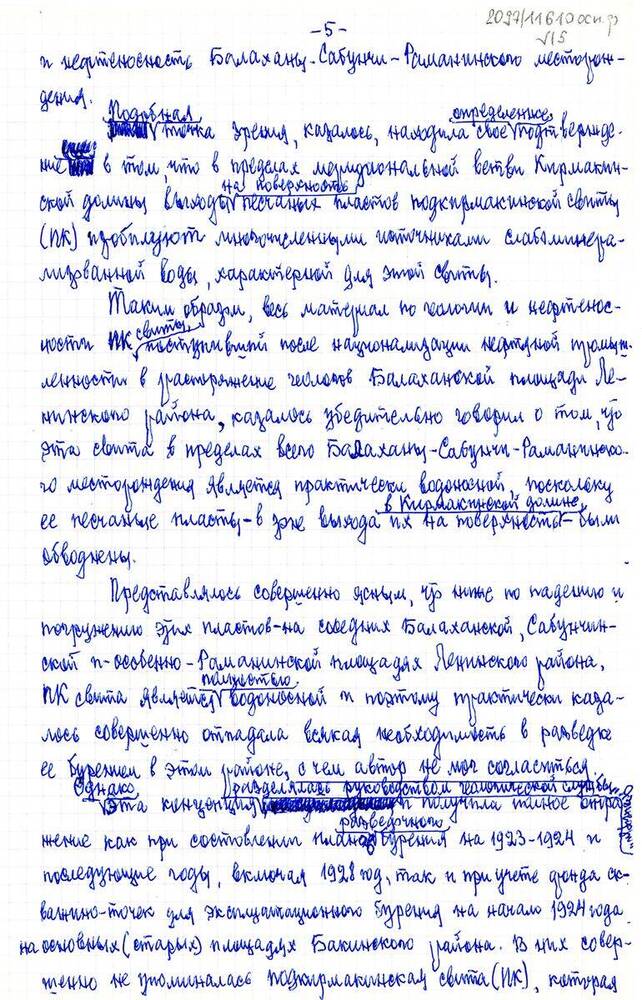 -5-
2097/11610 осн.ф
√15
и нефтеносность Балаханы-Сабунчи-Раманинского месторож-
дения.
Подобная точка зрения, казалось, находила свое определенное подтвержде-
ние в том, что в пределах меридиональной ветви Кирмакин-
ской долины выходы на поверхность песчаных пластов подкирмакинской свиты
(ПК) изобилуют многочисленными источниками слабоминера-
лизованной воды, характерной для этой свиты.
Таким образом, весь материал по геологии и нефтенос-
ности ПК свиты, поступивший после национализации нефтяной промыш-
ленности в распоряжение геологов Балаханской площади Ле-
нинского района, казалось убедительно говорил о том, что
эта свита в пределах всего Балаханы-Сабунчи-Раманинско-
го месторождения является практически водоносной, поскольку
ее песчаные пласты-в зоне выхода их на поверхность в Кирмакинской долине,-были
обводнены.
Представлялось совершенно ясным, что ниже по падению и
погружению этих пластов-на соседних Балаханской, Сабунчин-
ской и-особенно-Раманинской площадях Ленинского района,
ПК свита является полностью водоносной и поэтому практически каза-
лось совершенно отпадала всякая необходимость в разведке
ее бурением в этом районе, с чем автор не мог согласиться.
Однако, эта концепция разделялась руководством геологической службы и получила полное отра-
жение как при составлении плана разведочного бурения на 1923-1924 и
последующие годы, включая 1928 год, так и при учете фонда ск-
важино-точек для эксплуатационного бурения на начало 1924 года
на основных (старых) площадях Бакинского района. В них совер-
шенно не упоминалась подкирмакинская свита (ПК), которая